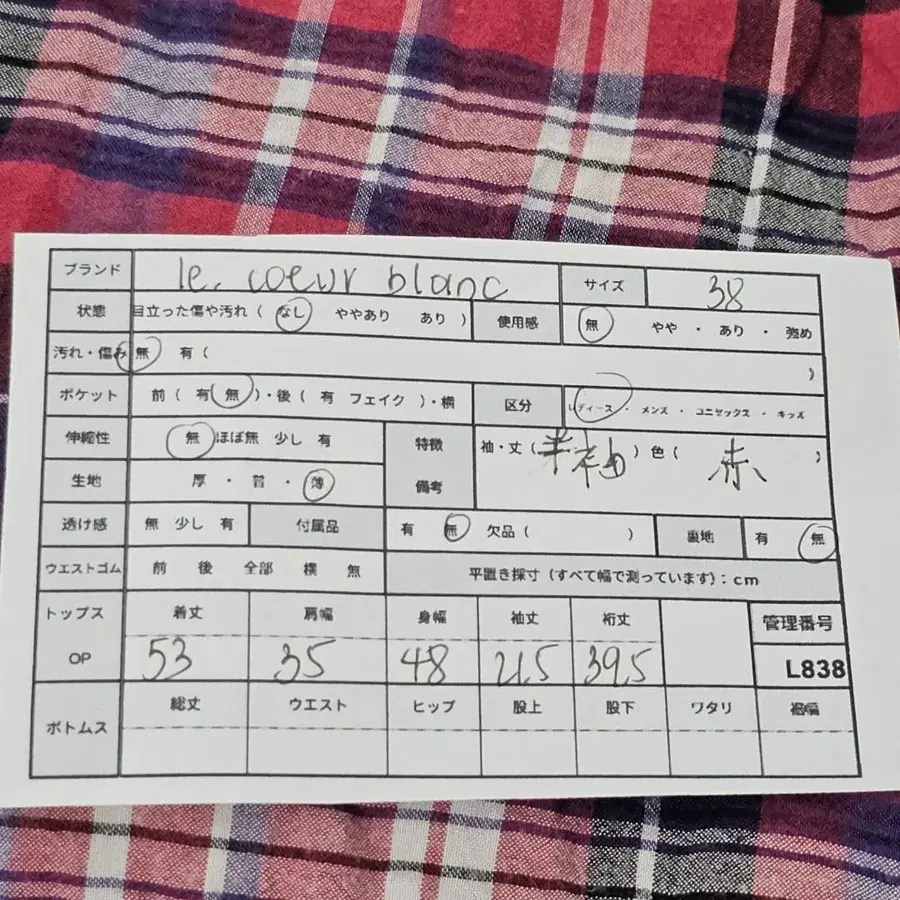 ブランド le. coeur blanc サイズ 38
状態 目立った傷や汚れ ( なし ややあり あり ) 使用感 無 やや ・ あり ・ 強め
汚れ・傷み 無 有 ( )
ポケット 前 ( 有 無 )・後 ( 有 フェイク )・横 区分 レディース ・ メンズ ・ ユニセックス ・ キッズ
伸縮性 無 ほぼ無 少し 有 特徴 袖・丈 ( 半袖 ) 色 ( 赤 )
生地 厚 ・ 普 ・ 薄 備考
透け感 無 少し 有 付属品 有 無 欠品 ( ) 裏地 有 無
ウエストゴム 前 後 全部 横 無 平置き採寸 (すべて幅で測っています) : cm
トップス 着丈 肩幅 身幅 袖丈 裄丈 管理番号
OP 53 35 48 39.5 L838
ボトムス 総丈 ウエスト ヒップ 股上 股下 ワタリ 裾幅